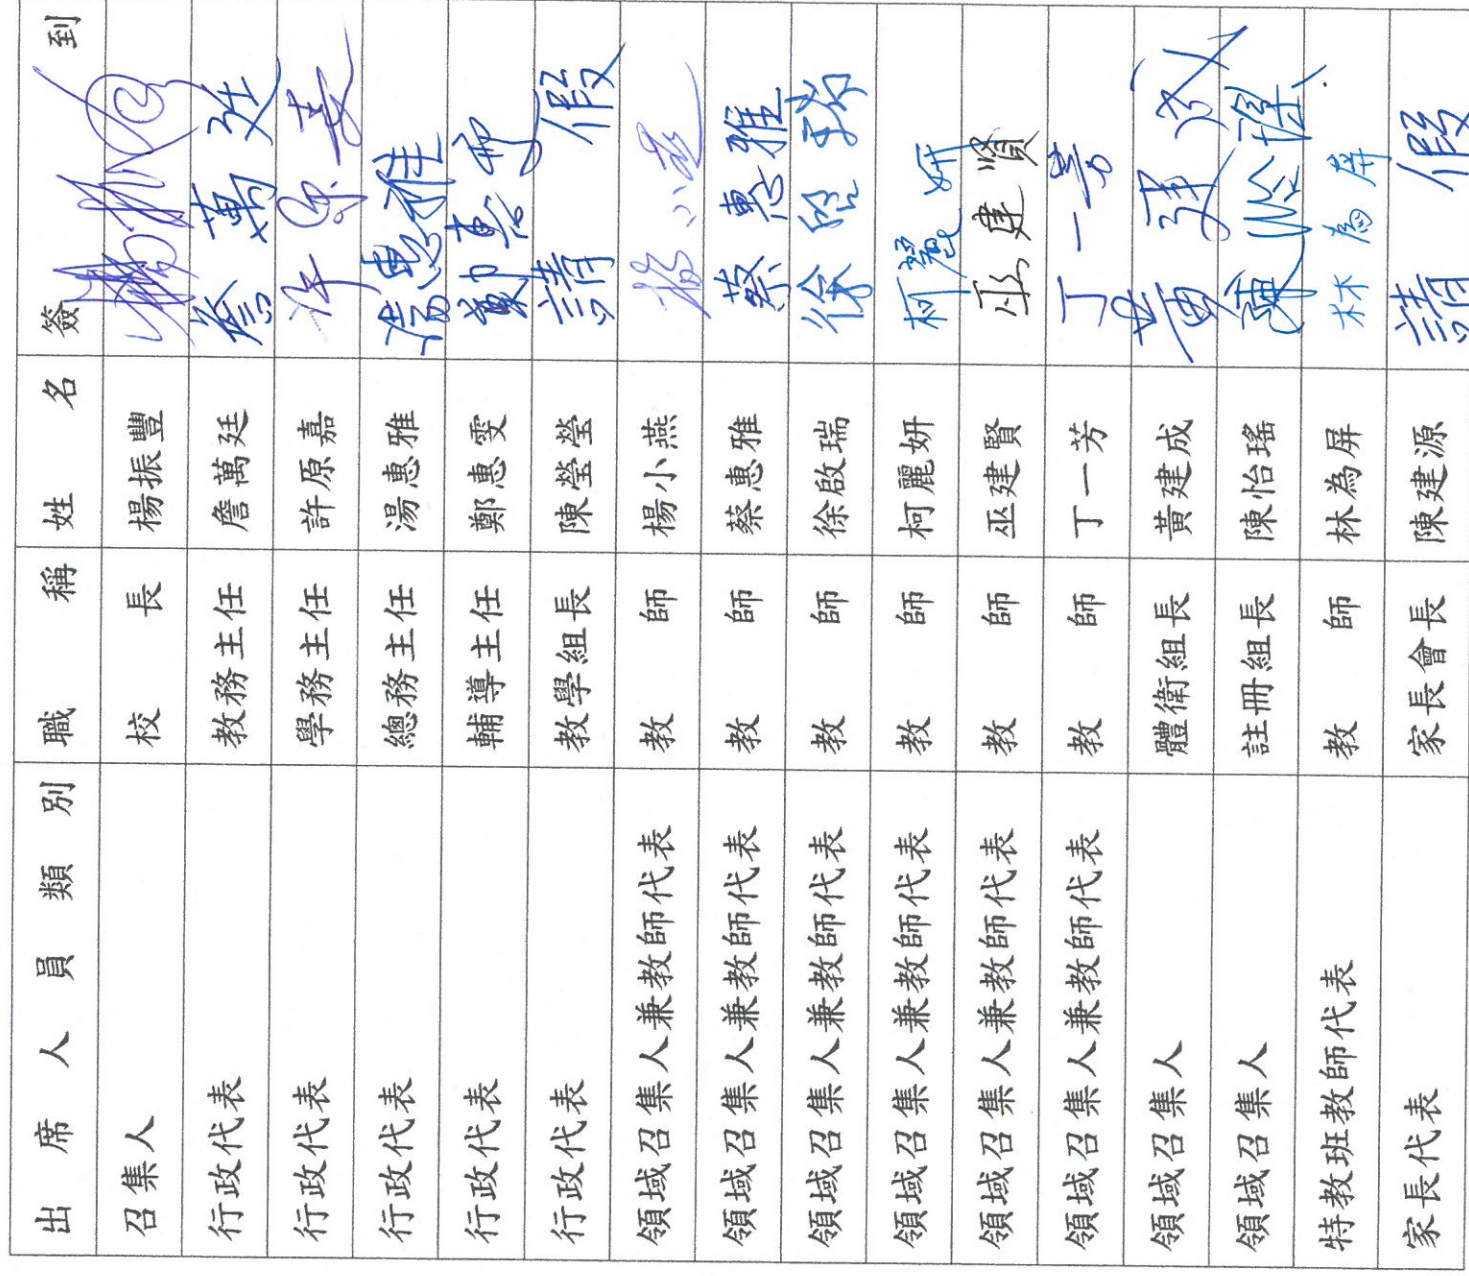 出席人員類別 職稱 姓名 簽到
召集人 校長 楊振豐
行政代表 教務主任 詹萬廷 詹萬廷
行政代表 學務主任 許原嘉 許原嘉
行政代表 總務主任 湯惠雅 湯惠雅
行政代表 輔導主任 鄭惠雯 鄭惠雯
行政代表 教學組長 陳瑩瑩 請假
領域召集人兼教師代表 教師 楊小燕 楊小燕
領域召集人兼教師代表 教師 蔡惠雅 蔡惠雅
領域召集人兼教師代表 教師 徐啟瑞 徐啟瑞
領域召集人兼教師代表 教師 柯麗妍 柯麗妍
領域召集人兼教師代表 教師 巫建賢 巫建賢
領域召集人兼教師代表 教師 丁一芳 丁一芳
領域召集人 體衛組長 黃建成 黃建成
領域召集人 註冊組長 陳怡瑤
特教班教師代表 教師 林為屏 林為屏
家長代表 家長會長 陳建源 請假